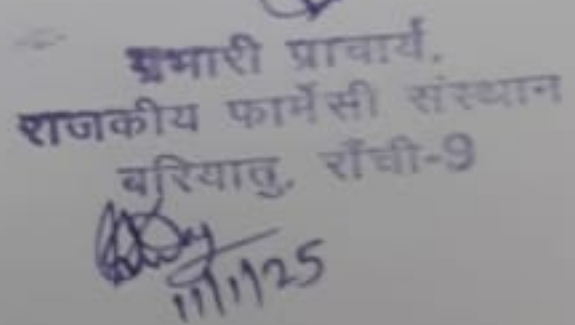 प्रभारी प्राचार्य,
राजकीय फार्मेसी संस्थान
बरियातु, राँची-9
11/1/25